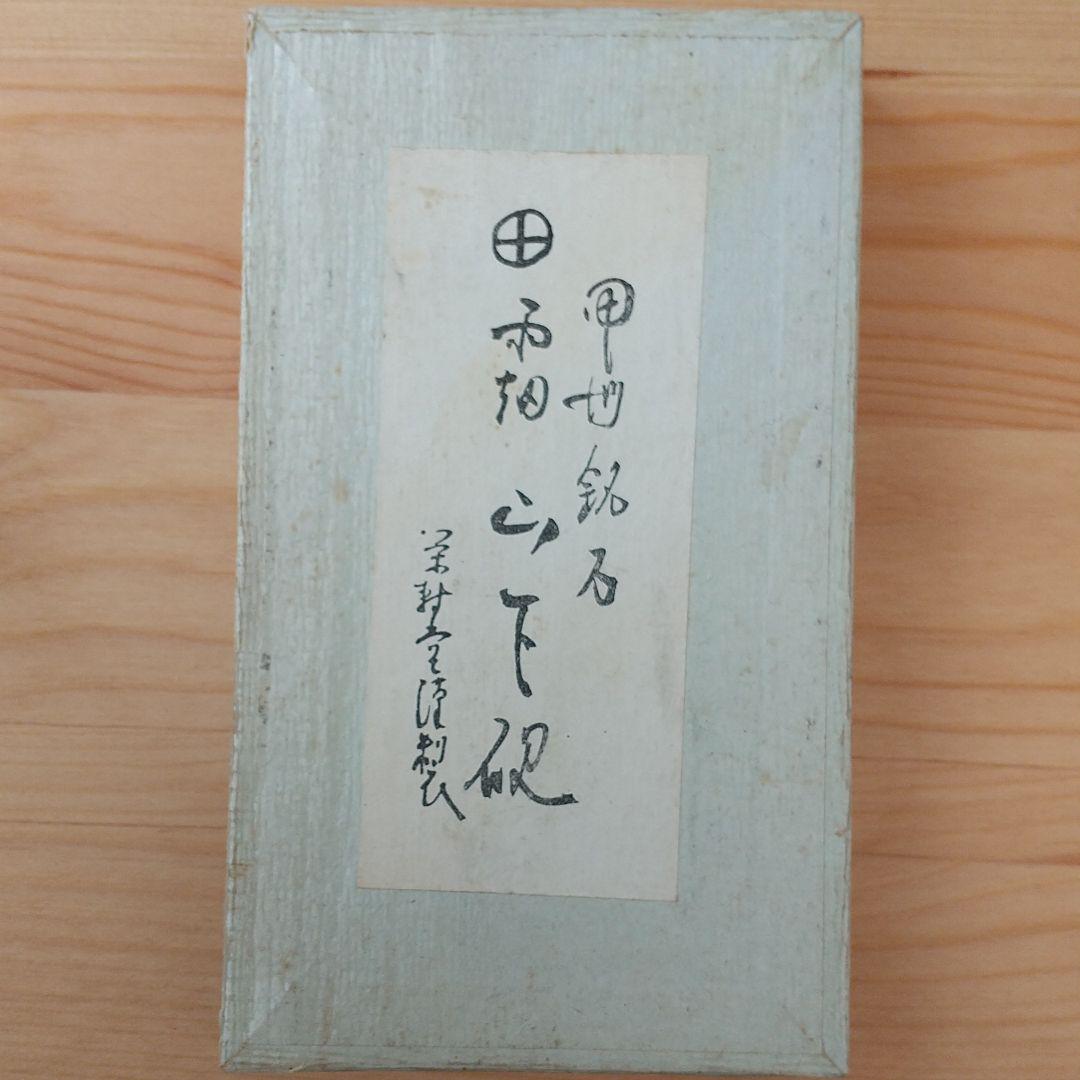 甲州銘石
雨畑 山下硯
堂謹製